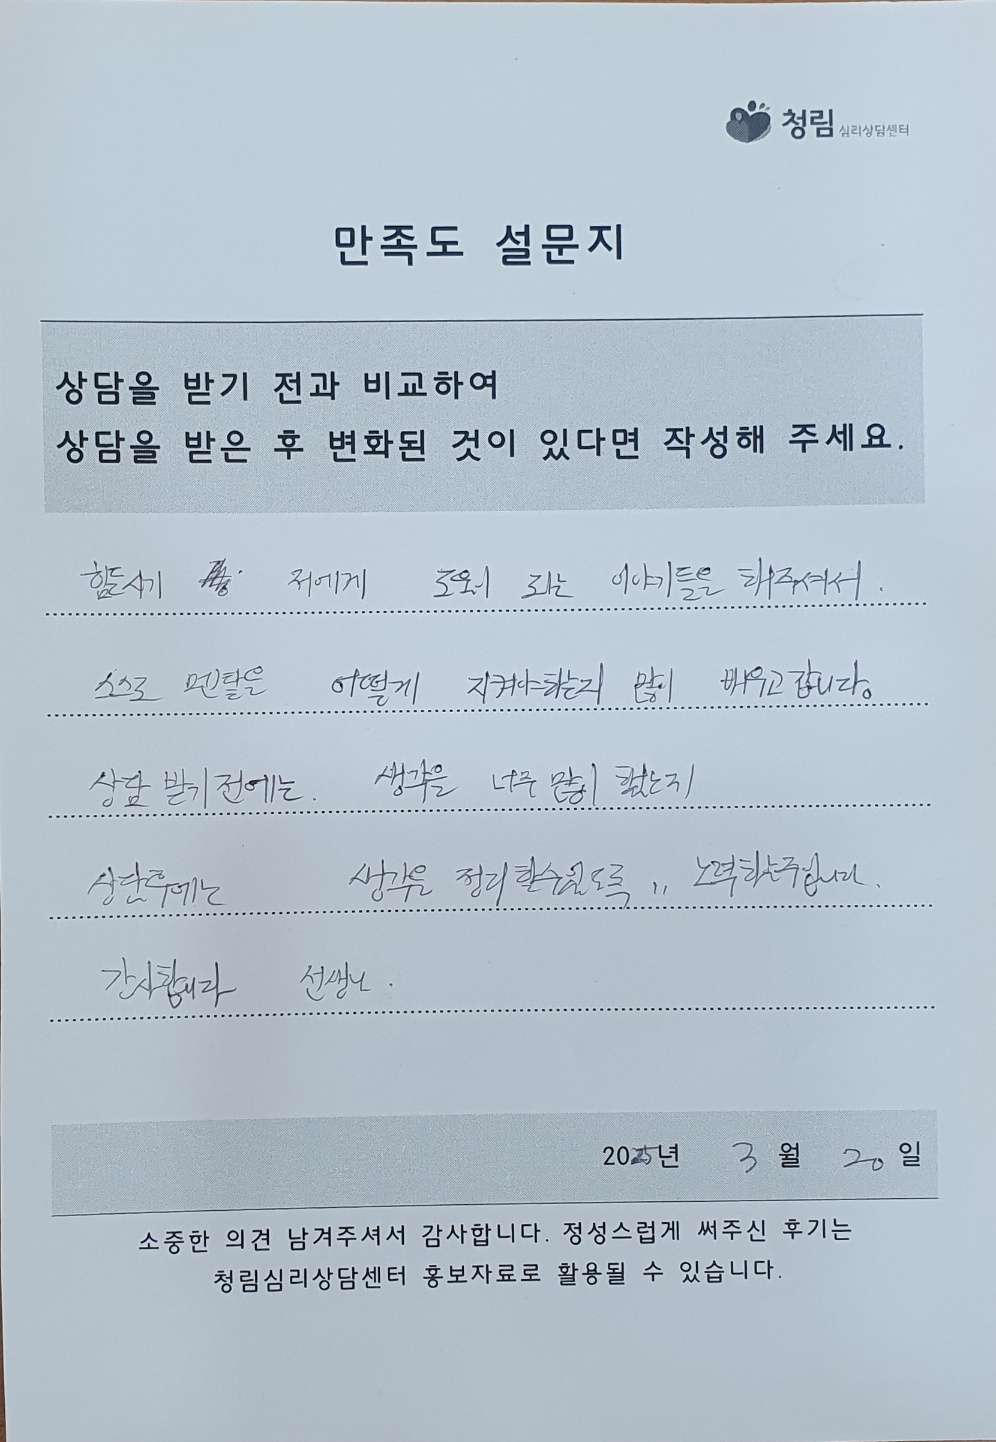 청림 심리상담센터
만족도 설문지
상담을 받기 전과 비교하여
상담을 받은 후 변화된 것이 있다면 작성해 주세요.
힘든시기 저에게 도움이 되는 이야기들을 해주셔서.
스스로 멘탈을 어떻게 지켜야하는지 많이 배우고갑니다.
상담 받기전에는. 생각을 너무 많이 했는지
상담후에는 생각을 정리할수있도록,, 노력하는중입니다.
감사합니다 선생님.
2025년 3월 20일
소중한 의견 남겨주셔서 감사합니다. 정성스럽게 써주신 후기는
청림심리상담센터 홍보자료로 활용될 수 있습니다.